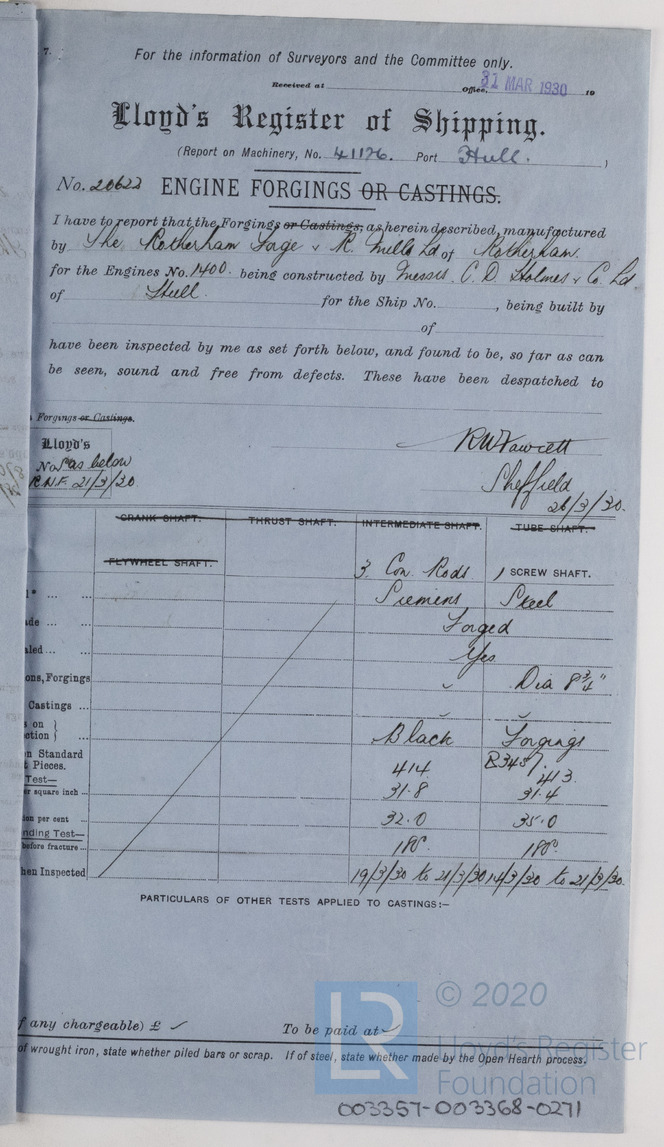 7.
For the information of Surveyors and the Committee only.
Received at Office, 31 MAR 1930 19
Lloyd's Register of Shipping.
(Report on Machinery, No. 41176. Port Hull. )
No. 20622 ENGINE FORGINGS OR CASTINGS.
I have to report that the Forgings or Castings, as herein described, manufactured
by The Rotherham Forge & R. Mills Ld of Rotherham.
for the Engines No. 1400. being constructed by Messrs. C. D. Holmes & Co. Ld.
of Hull. for the Ship No. , being built by
of
have been inspected by me as set forth below, and found to be, so far as can
be seen, sound and free from defects. These have been despatched to
Forgings or Castings.
Lloyd's
No as below
21/3/30
RW Fawcett
Sheffield
26/3/30.
CRANK SHAFT. THRUST SHAFT. INTERMEDIATE SHAFT. TUBE SHAFT.
FLYWHEEL SHAFT. 3 Con. Rods 1 SCREW SHAFT.
l* ... ... Siemens Steel
de ... ... Forged
led ... ... Yes
ons, Forgings Dia 8 3/4"
Castings ...
s on }
ction } Black Forgings
n Standard
t Pieces. 414 R3457. 413
Test—
r square inch ... 31.8 31.4
on per cent ... 32.0 35.0
nding Test—
before fracture ... 180° 180°
hen Inspected 19/3/30 to 21/3/30 14/3/30 to 21/3/30.
PARTICULARS OF OTHER TESTS APPLIED TO CASTINGS:—
f any chargeable) £ To be paid at
of wrought iron, state whether piled bars or scrap. If of steel, state whether made by the Open Hearth process.
LR
© 2020
Lloyd's Register
Foundation
003357-003368-0271